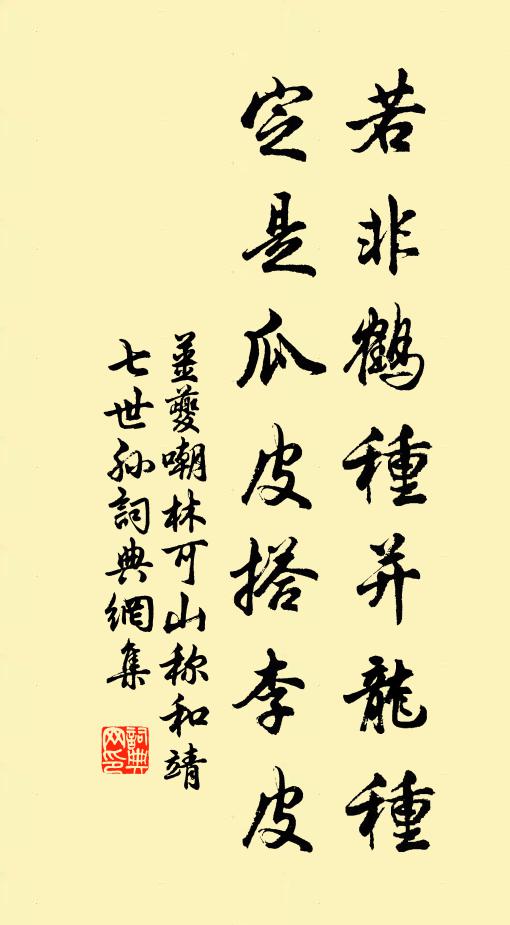 若非鶴種并龍種
定是瓜皮搭李皮
薑夔嘲林可山称和靖
七世孫詞典網集
詞典
网印